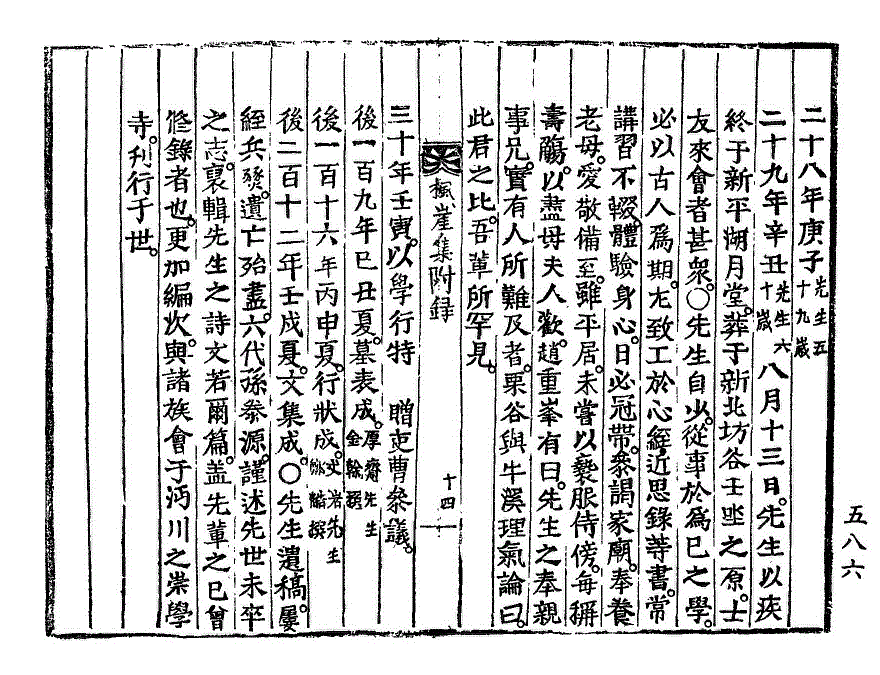 二十八年庚子先生五十九歲
二十九年辛丑先生六十歲八月十三日。先生以疾
終于新平湖月堂。葬于新北坊谷壬坐之原。士
友來會者甚衆。○先生自少。從事於爲己之學。
必以古人爲期。尤致工於心經近思錄等書。常
講習不輟。體驗身心。日必冠帶。參謁家廟。奉養
老母。愛敬備至。雖平居。未嘗以褻服侍傍。每稱
壽觴。以盡母夫人歡。趙重峯有曰。先生之奉親
事兄。實有人所難及者。栗谷與牛溪理氣論曰。
此君之比。吾輩所罕見。
楓崖集附錄
十四
三十年壬寅。以學行特 贈吏曹參議。
後一百九年己丑夏。墓表成。厚齋先生金榦撰
後一百十六年丙申夏。行狀成。丈岩先生
後二百十二年壬戌夏。文集成。○先生遺稿。屢
經兵燹。遺亡殆盡。六代孫泰源。謹述先世未卒
之志。裒輯先生之詩文若爾篇。盖先輩之已曾
修錄者也。更加編次。與諸族會于沔川之崇學
寺。刊行于世。
五八六